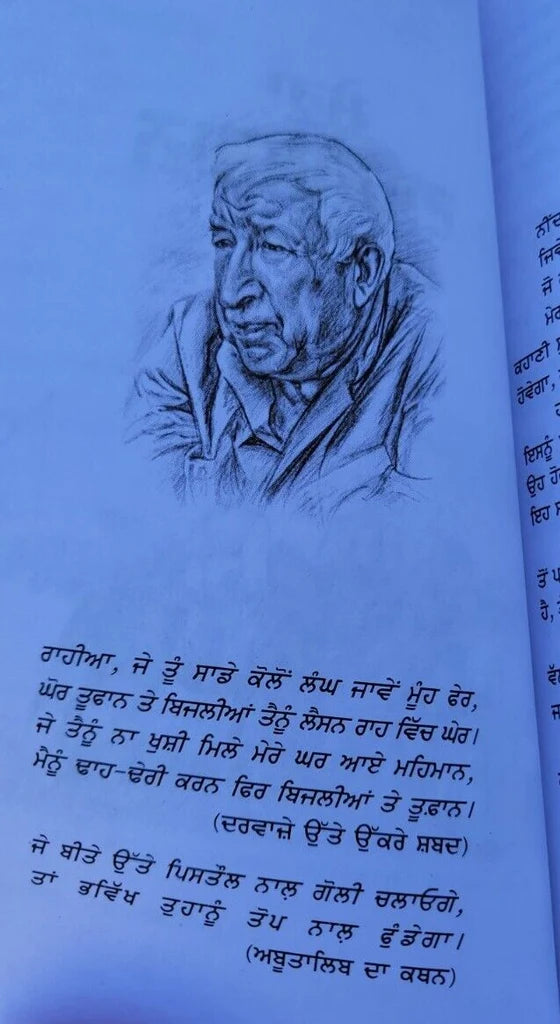 ਰਾਹੀਆ, ਜੇ ਤੂੰ ਸਾਡੇ ਕੋਲੋਂ ਲੰਘ ਜਾਵੇਂ ਮੂੰਹ ਫੇਰ,
ਘੋਰ ਤੂਫਾਨ ਤੇ ਬਿਜਲੀਆਂ ਤੈਨੂੰ ਲੈਸਨ ਰਾਹ ਵਿੱਚ ਘੇਰ।
ਜੇ ਤੈਨੂੰ ਨਾ ਖੁਸ਼ੀ ਮਿਲੇ ਮੇਰੇ ਘਰ ਆਏ ਮਹਿਮਾਨ,
ਮੈਨੂੰ ਢਾਹ-ਢੇਰੀ ਕਰਨ ਫਿਰ ਬਿਜਲੀਆਂ ਤੇ ਤੂਫ਼ਾਨ।
(ਦਰਵਾਜ਼ੇ ਉੱਤੇ ਉੱਕਰੇ ਸ਼ਬਦ)
ਜੇ ਬੀਤੇ ਉੱਤੇ ਪਿਸਤੌਲ ਨਾਲ਼ ਗੋਲੀ ਚਲਾਓਗੇ,
ਤਾਂ ਭਵਿੱਖ ਤੁਹਾਨੂੰ ਤੋਪ ਨਾਲ਼ ਫੁੰਡੇਗਾ।
(ਅਬੂਤਾਲਿਬ ਦਾ ਕਥਨ)
ਕਹਾਣੀ
ਹੋਵੇਗਾ,
ਇਸਨੂੰ
ਉਹ
ਇਹ
ਤੋਂ
ਹੈ,